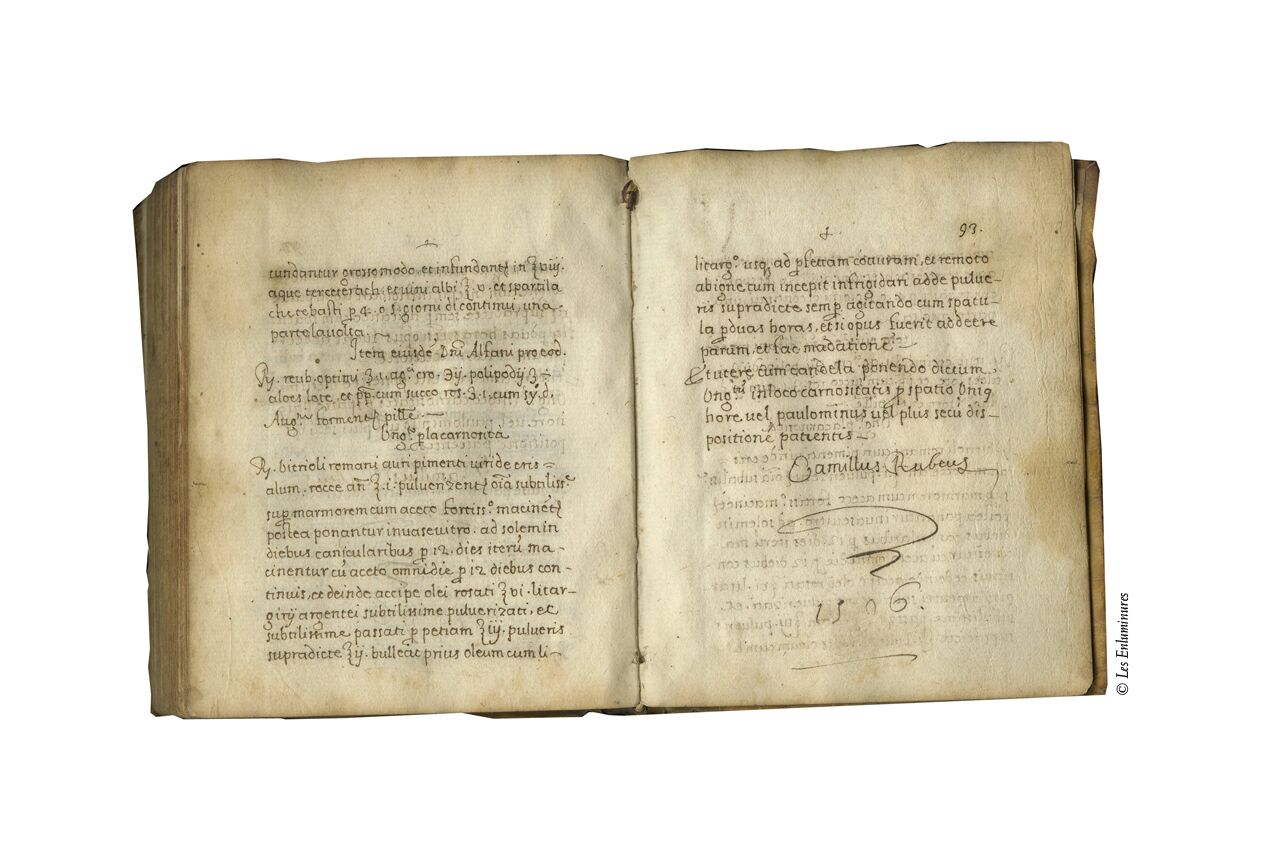 tundantur grosso modo, et infundant[ur] in ℥ viij.
aque tercegrach, et vini albi ℥ v. et spartila
che te basti p̱ 4. o 5. giorni di continui, una
parte la volta.
Item eiusdē Dnī Alfani pro eod.
reub. optimi ʒ.1. cro. polipodij ʒ
aloes lote, et cum succo ros. ʒ.1. cum sy. d.
forment pille.
Ung.to p̱ la carnosità
vitrioli romani auri pimenti viride eris
alum. rocce an̄ ℥.1. pulverizent oīa subtiliss.e
sup̱ marmorem cum aceto fortiss.o macinet
postea ponantur in vase vitro. ad solem in
diebus canicularibus p̱ 12. dies iterū ma-
cinentur cū aceto omni die p̱ 12 diebus con-
tinuis, et deinde accipe olei rosati ℥ vi. litar-
girij argentei subtilissime pulverizati, et
subtilissime passati p̱ petiam ℥ iij. pulveris
supradicte ℥ ij. bulleat prius oleum cum li-
93.
litarg.o usq, ad p̱fettam coturam, et remoto
ab igne cum incepit infrigidari adde pulve-
ris supradicte semp̱ agitando cum spatu-
la p̱ duas horas, et si opus fuerit addere
parum, et fac madationē
Et utere cum candela ponendo dictum
Ung.tū in loco carnositatis p̱ spatio uniq
hore vel paulominus vel plus secū dis-
positionē patientis
Camillus Rubeus
1506.
© Les Enluminures